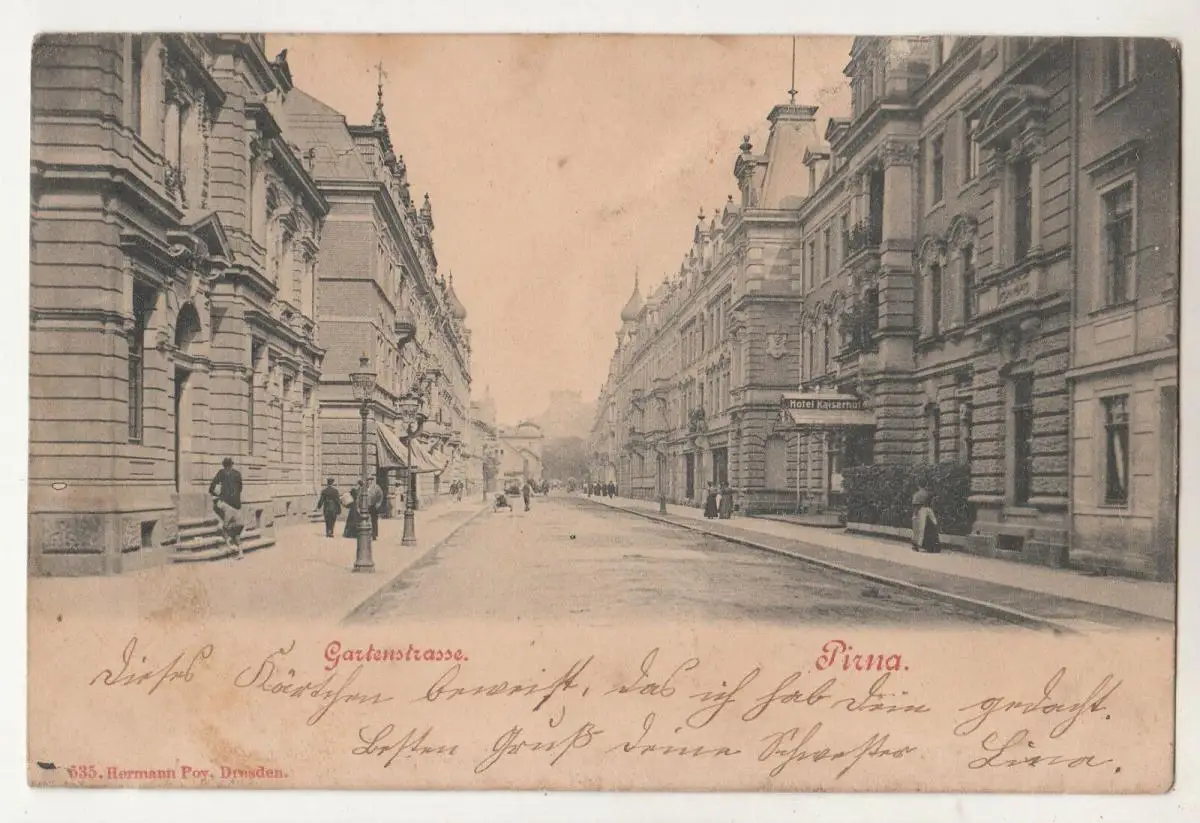 Hotel Kaiserhof
Gartenstrasse.
Pirna.
Dieses Kärtchen beweist, das ich hab Dein gedacht.
Besten Gruß Deine Schwester Lina.
535. Hermann Poy, Dresden.